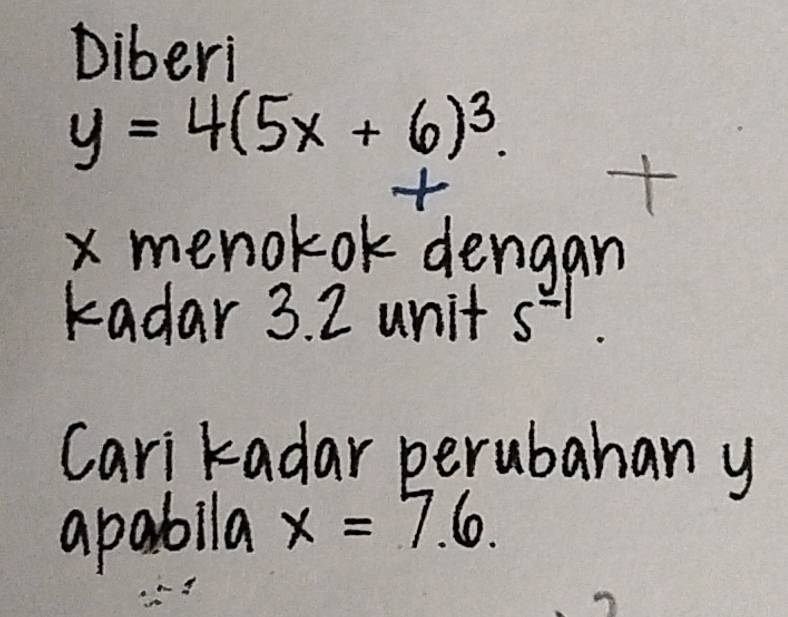 Diberi
y = 4(5x + 6)³.
+ +
x menokok dengan
kadar 3.2 unit s⁻¹.
Cari kadar perubahan y
apabila x = 7.6.